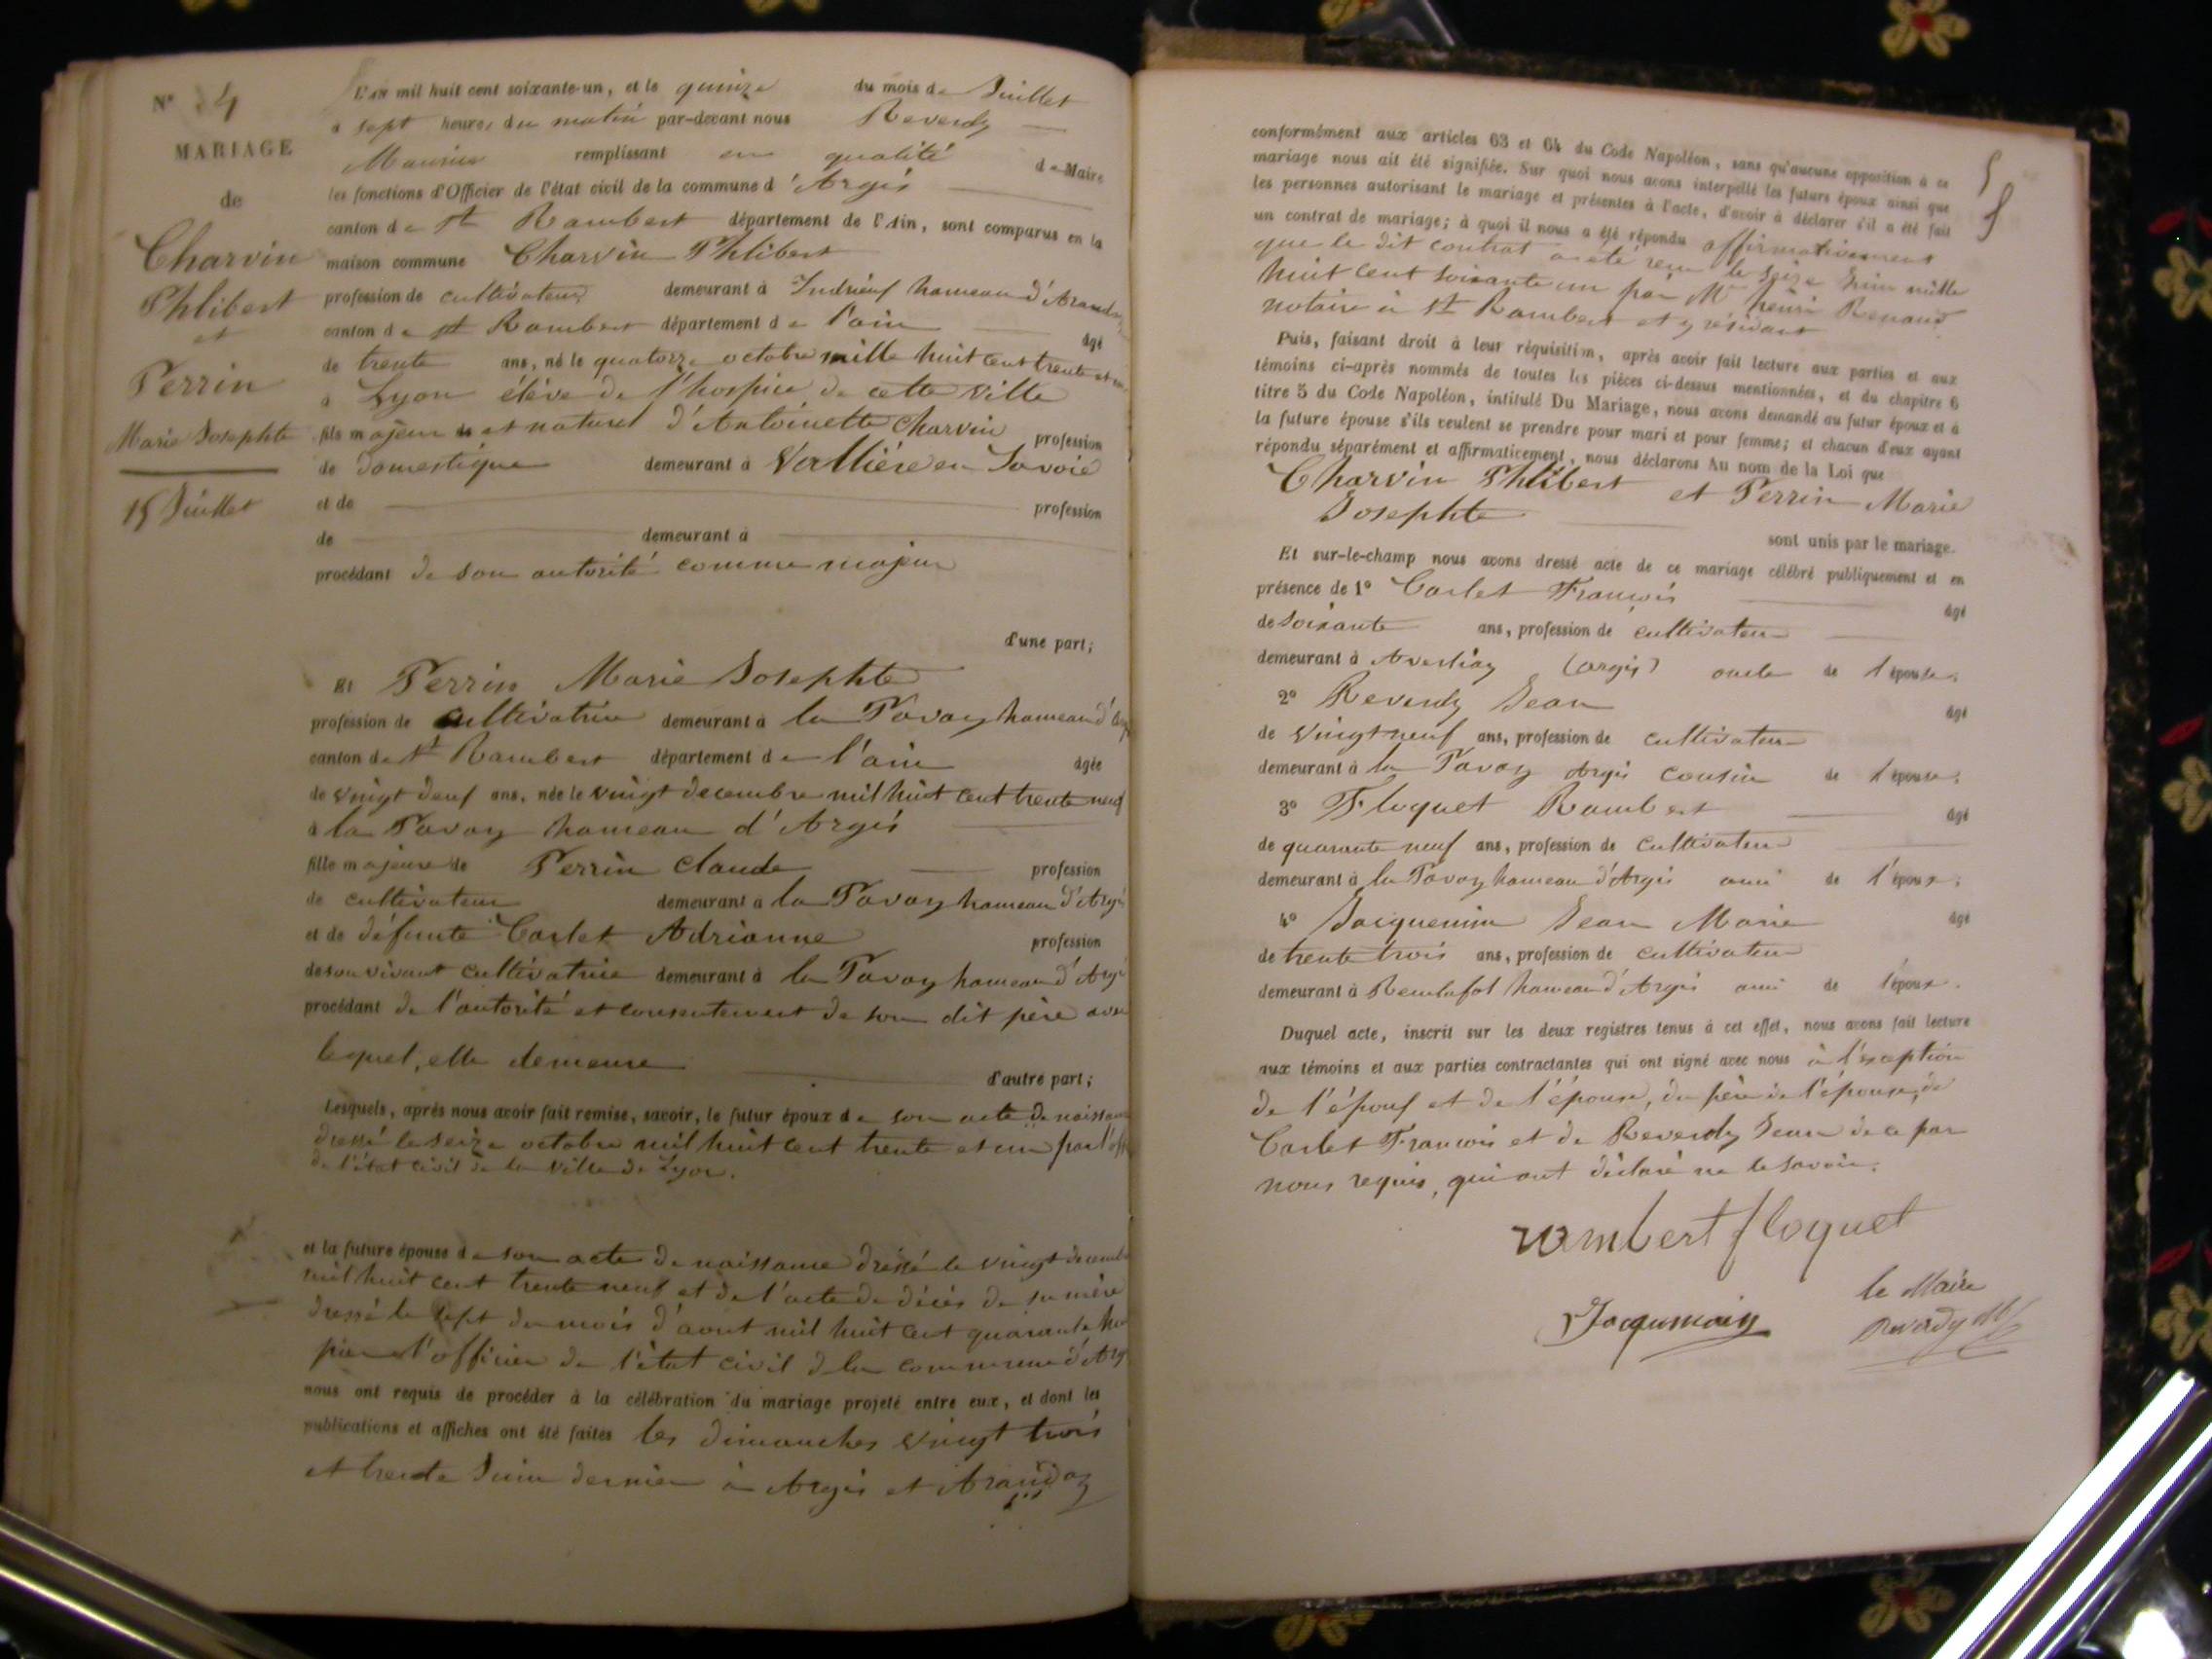 N° 4
MARIAGE
de
Charvin
Phlibert
et
Perrin
Marie Josephte
15 Juillet
L'an mil huit cent soixante-un, et le quinze du mois de Juillet
à sept heures du matin par-devant nous Reverdy
Maurice remplissant en qualité de Maire
les fonctions d'Officier de l'état civil de la commune d'Argis
canton de St Rambert département de l'Ain, sont comparus en la
maison commune Charvin Phlibert
profession de cultivateur demeurant à Indrieuf hameau d'Arand
canton de St Rambert département de l'ain âgé
de trente ans, né le quatorze octobre mille huit cent trente et
à Lyon élève de l'hospice de cette ville
fils majeur et naturel d'Antoinette Charvin profession
de domestique demeurant à en Savoie
et de profession
de demeurant à
procédant de son autorité comme majeur
d'une part;
Et Perrin Marie Josephte
profession de cultivatrice demeurant à la Pavaz hameau d'
canton de St Rambert département de l'ain âgée
de vingt deuf ans, née le vingt decembre mil huit cent trente neuf
à la Pavaz hameau d'Argis
fille majeure de Perrin claude profession
de cultivateur demeurant à la Pavaz hameau d'Argi
et de défunte Carlet Adrianne profession
de son vivant cultivatrice demeurant à la Pavaz hameau d'Argi
procédant de l'autorité et consentement de son dit père avec
lequel, elle demeure
d'autre part;
Lesquels, après nous avoir fait remise, savoir, le futur époux de son acte de naissan
dressé le seize octobre mil huit cent trente et un par l'off
de l'état civil de la ville de Lyon.
et la future épouse de son acte de naissance dressé le vingt decemb
mil huit cent trente neuf et de l'acte de décès de sa mère
dressé le sept du mois d'aout mil huit cent quarante
par l'officier de l'état civil de la commune d'Arg
nous ont requis de procéder à la célébration du mariage projeté entre eux, et dont les
publications et affiches ont été faites les dimanches vingt trois
et trente Juin dernier à Argis et Arandaz
conformément aux articles 63 et 64 du Code Napoléon, sans qu'aucune opposition à ce
mariage nous ait été signifiée. Sur quoi nous avons interpellé les futurs époux ainsi que
les personnes autorisant le mariage et présentes à l'acte, d'avoir à déclarer s'il a été fait
un contrat de mariage; à quoi il nous a été répondu affirmativement
que le dit contrat a été reçu le seize Juin mille
huit cent soixante un par Me henri Renaud
notaire à St Rambert et y résidant
Puis, faisant droit à leur réquisition, après avoir fait lecture aux parties et aux
témoins ci-après nommés de toutes les pièces ci-dessus mentionnées, et du chapitre 6
titre 5 du Code Napoléon, intitulé Du Mariage, nous avons demandé au futur époux et à
la future épouse s'ils veulent se prendre pour mari et pour femme; et chacun d'eux ayant
répondu séparément et affirmativement, nous déclarons Au nom de la Loi que
Charvin Phlibert et Perrin Marie
Josephte
sont unis par le mariage.
Et sur-le-champ nous avons dressé acte de ce mariage célébré publiquement et en
présence de 1° Carlet François âgé
de soixante ans, profession de cultivateur
demeurant à Averliaz (argis) oncle de l'épouse;
2° Reverdy Jean âgé
de vingt neuf ans, profession de cultivateur
demeurant à la Pavaz Argis cousin de l'épouse;
3° Floquet Rambert âgé
de quarante neuf ans, profession de cultivateur
demeurant à la Pavaz hameau d'Argis ami de l'époux;
4° Jacquemin Jean Marie âgé
de trente trois ans, profession de cultivateur
demeurant à Reculafol hameau d'Argis ami de l'époux.
Duquel acte, inscrit sur les deux registres tenus à cet effet, nous avons fait lecture
aux témoins et aux parties contractantes qui ont signé avec nous à l'exception
de l'épouf et de l'épouse, du père de l'épouse, de
Carlet François et de Reverdy Jean de ce par
nous requis, qui ont déclaré ne le savoir.
rambert floquet
le Maire
Jaquemain
Reverdy M